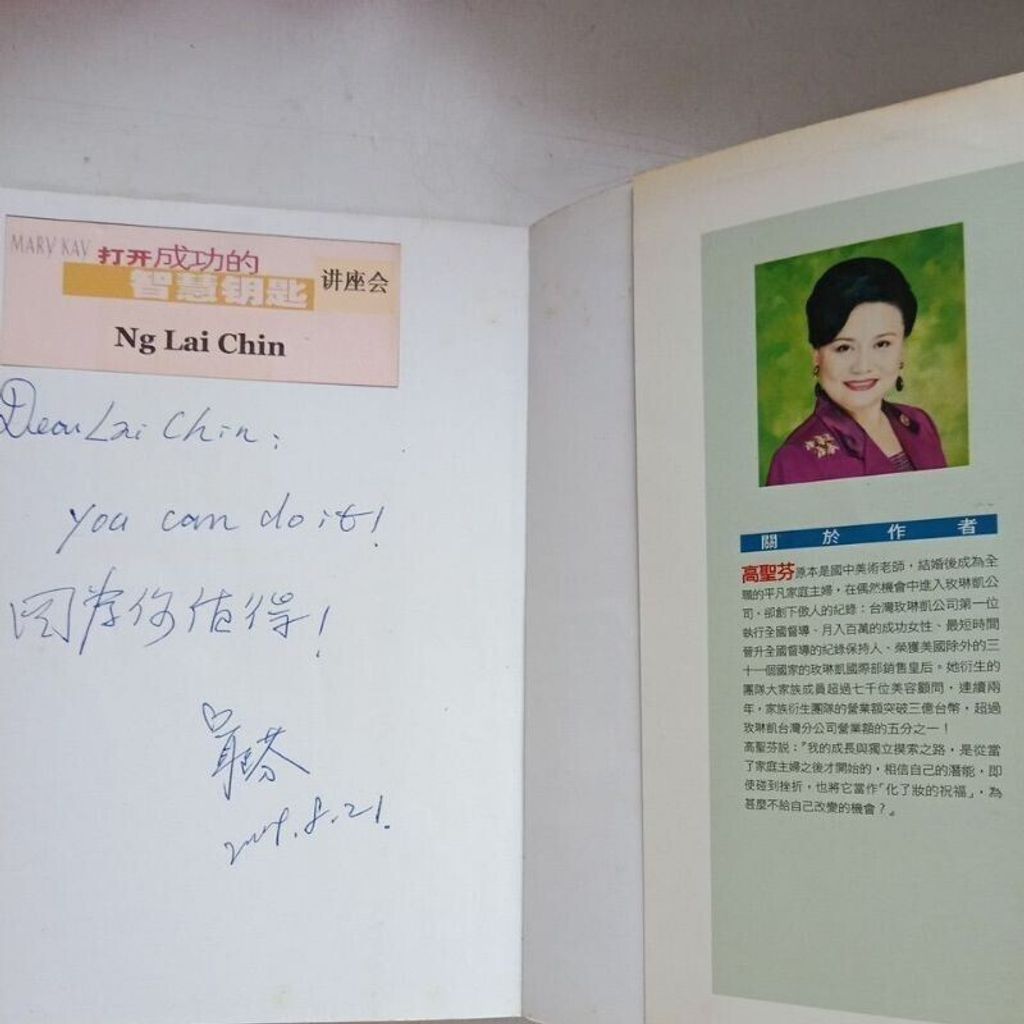 MARY KAY 打开成功的
智慧钥匙 讲座会
Ng Lai Chin
Dear Lai Chin:
you can do it!
因为你值得!
聖芬
8.21.
關於作者
高聖芬原本是國中美術老師，結婚後成為全
職的平凡家庭主婦，在偶然機會中進入玫琳凱公
司，卻創下傲人的紀錄：台灣玫琳凱公司第一位
執行全國督導、月入百萬的成功女性、最短時間
晉升全國督導的紀錄保持人、榮獲美國除外的三
十一個國家的玫琳凱國際部銷售皇后。她衍生的
團隊大家族成員超過七千位美容顧問，連續兩
年，家族衍生團隊的營業額突破三億台幣，超過
玫琳凱台灣分公司營業額的五分之一！
高聖芬說：『我的成長與獨立摸索之路，是從當
了家庭主婦之後才開始的，相信自己的潛能，即
使碰到挫折，也將它當作「化了妝的祝福」，為
甚麼不給自己改變的機會？』